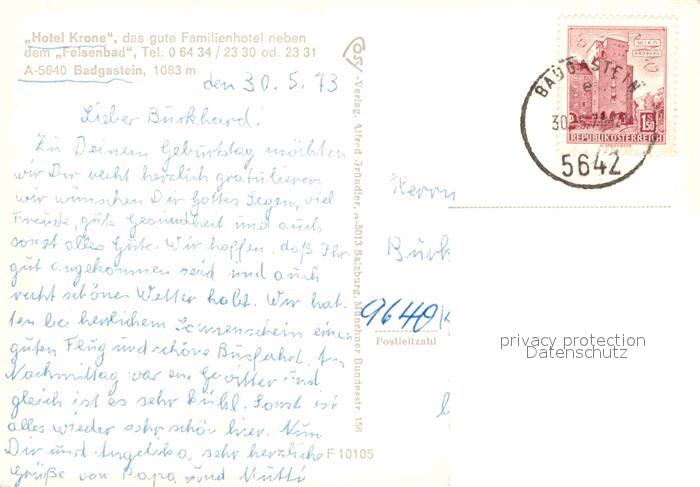 „Hotel Krone", das gute Familienhotel neben
dem „Felsenbad", Tel. 0 64 34 / 23 30 od. 23 31
A-5640 Badgastein, 1083 m
den 30. 5. 73
Lieber Burkhard!
Zu Deinem Geburtstag möchten
wir Dir recht herzlich gratulieren
wir wünschen Dir Gottes Segen, viel
Freude, gute Gesundheit und auch
sonst alles Gute. Wir hoffen, daß Ihr
gut angekommen seid und auch
recht schönes Wetter habt. Wir hat-
ten bei herrlichem Sonnenschein einen
guten Flug und schöne Busfahrt. Am
Nachmittag war ein Gewitter und
gleich ist es sehr kühl. Sonst ist
alles wieder sehr schön hier. Nun
Dir und Angelika sehr herzliche
Grüße von Papa und Mutti
Verlag Alfred Gründler, A-5013 Salzburg, Münchner Bundesstr. 156
F 10105
WIEN
ERDBERG
1.50
REPUBLIK ÖSTERREICH
BADGASTEIN
e
5642
Herrn
Burk
9640
Postleitzahl
privacy protection
Datenschutz